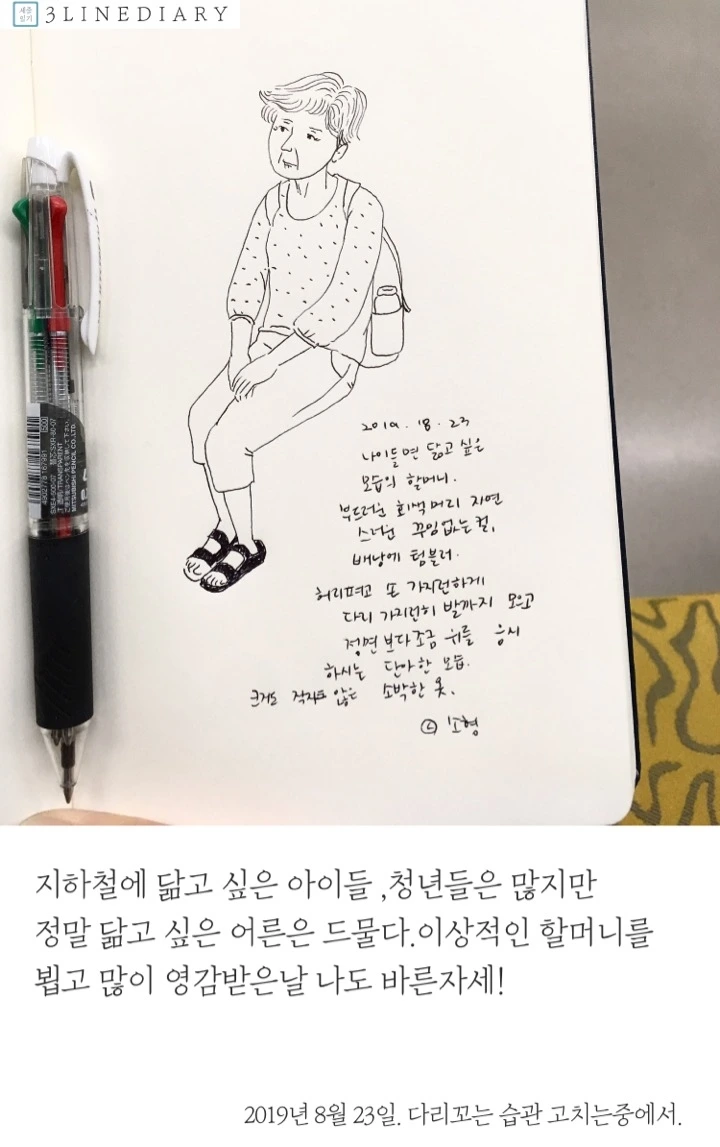 세줄
일기
3LINEDIARY
2019. 8. 23
나이들면 닮고 싶은
모습의 할머니.
부드러운 회색머리 자연
스러운 꾸임없는 컬,
배낭에 텀블러.
허리펴고 손 가지런하게
다리 가지런히 발까지 모으고
정면 보다 조금 위를 응시
하시는 단아한 모습.
크게도 작지도 않은 소박한 옷.
소형
MITSUBISHI PENCIL CO.,LTD.
지하철에 닮고 싶은 아이들 ,청년들은 많지만
정말 닮고 싶은 어른은 드물다.이상적인 할머니를
뵙고 많이 영감받은날 나도 바른자세!
2019년 8월 23일. 다리꼬는 습관 고치는중에서.